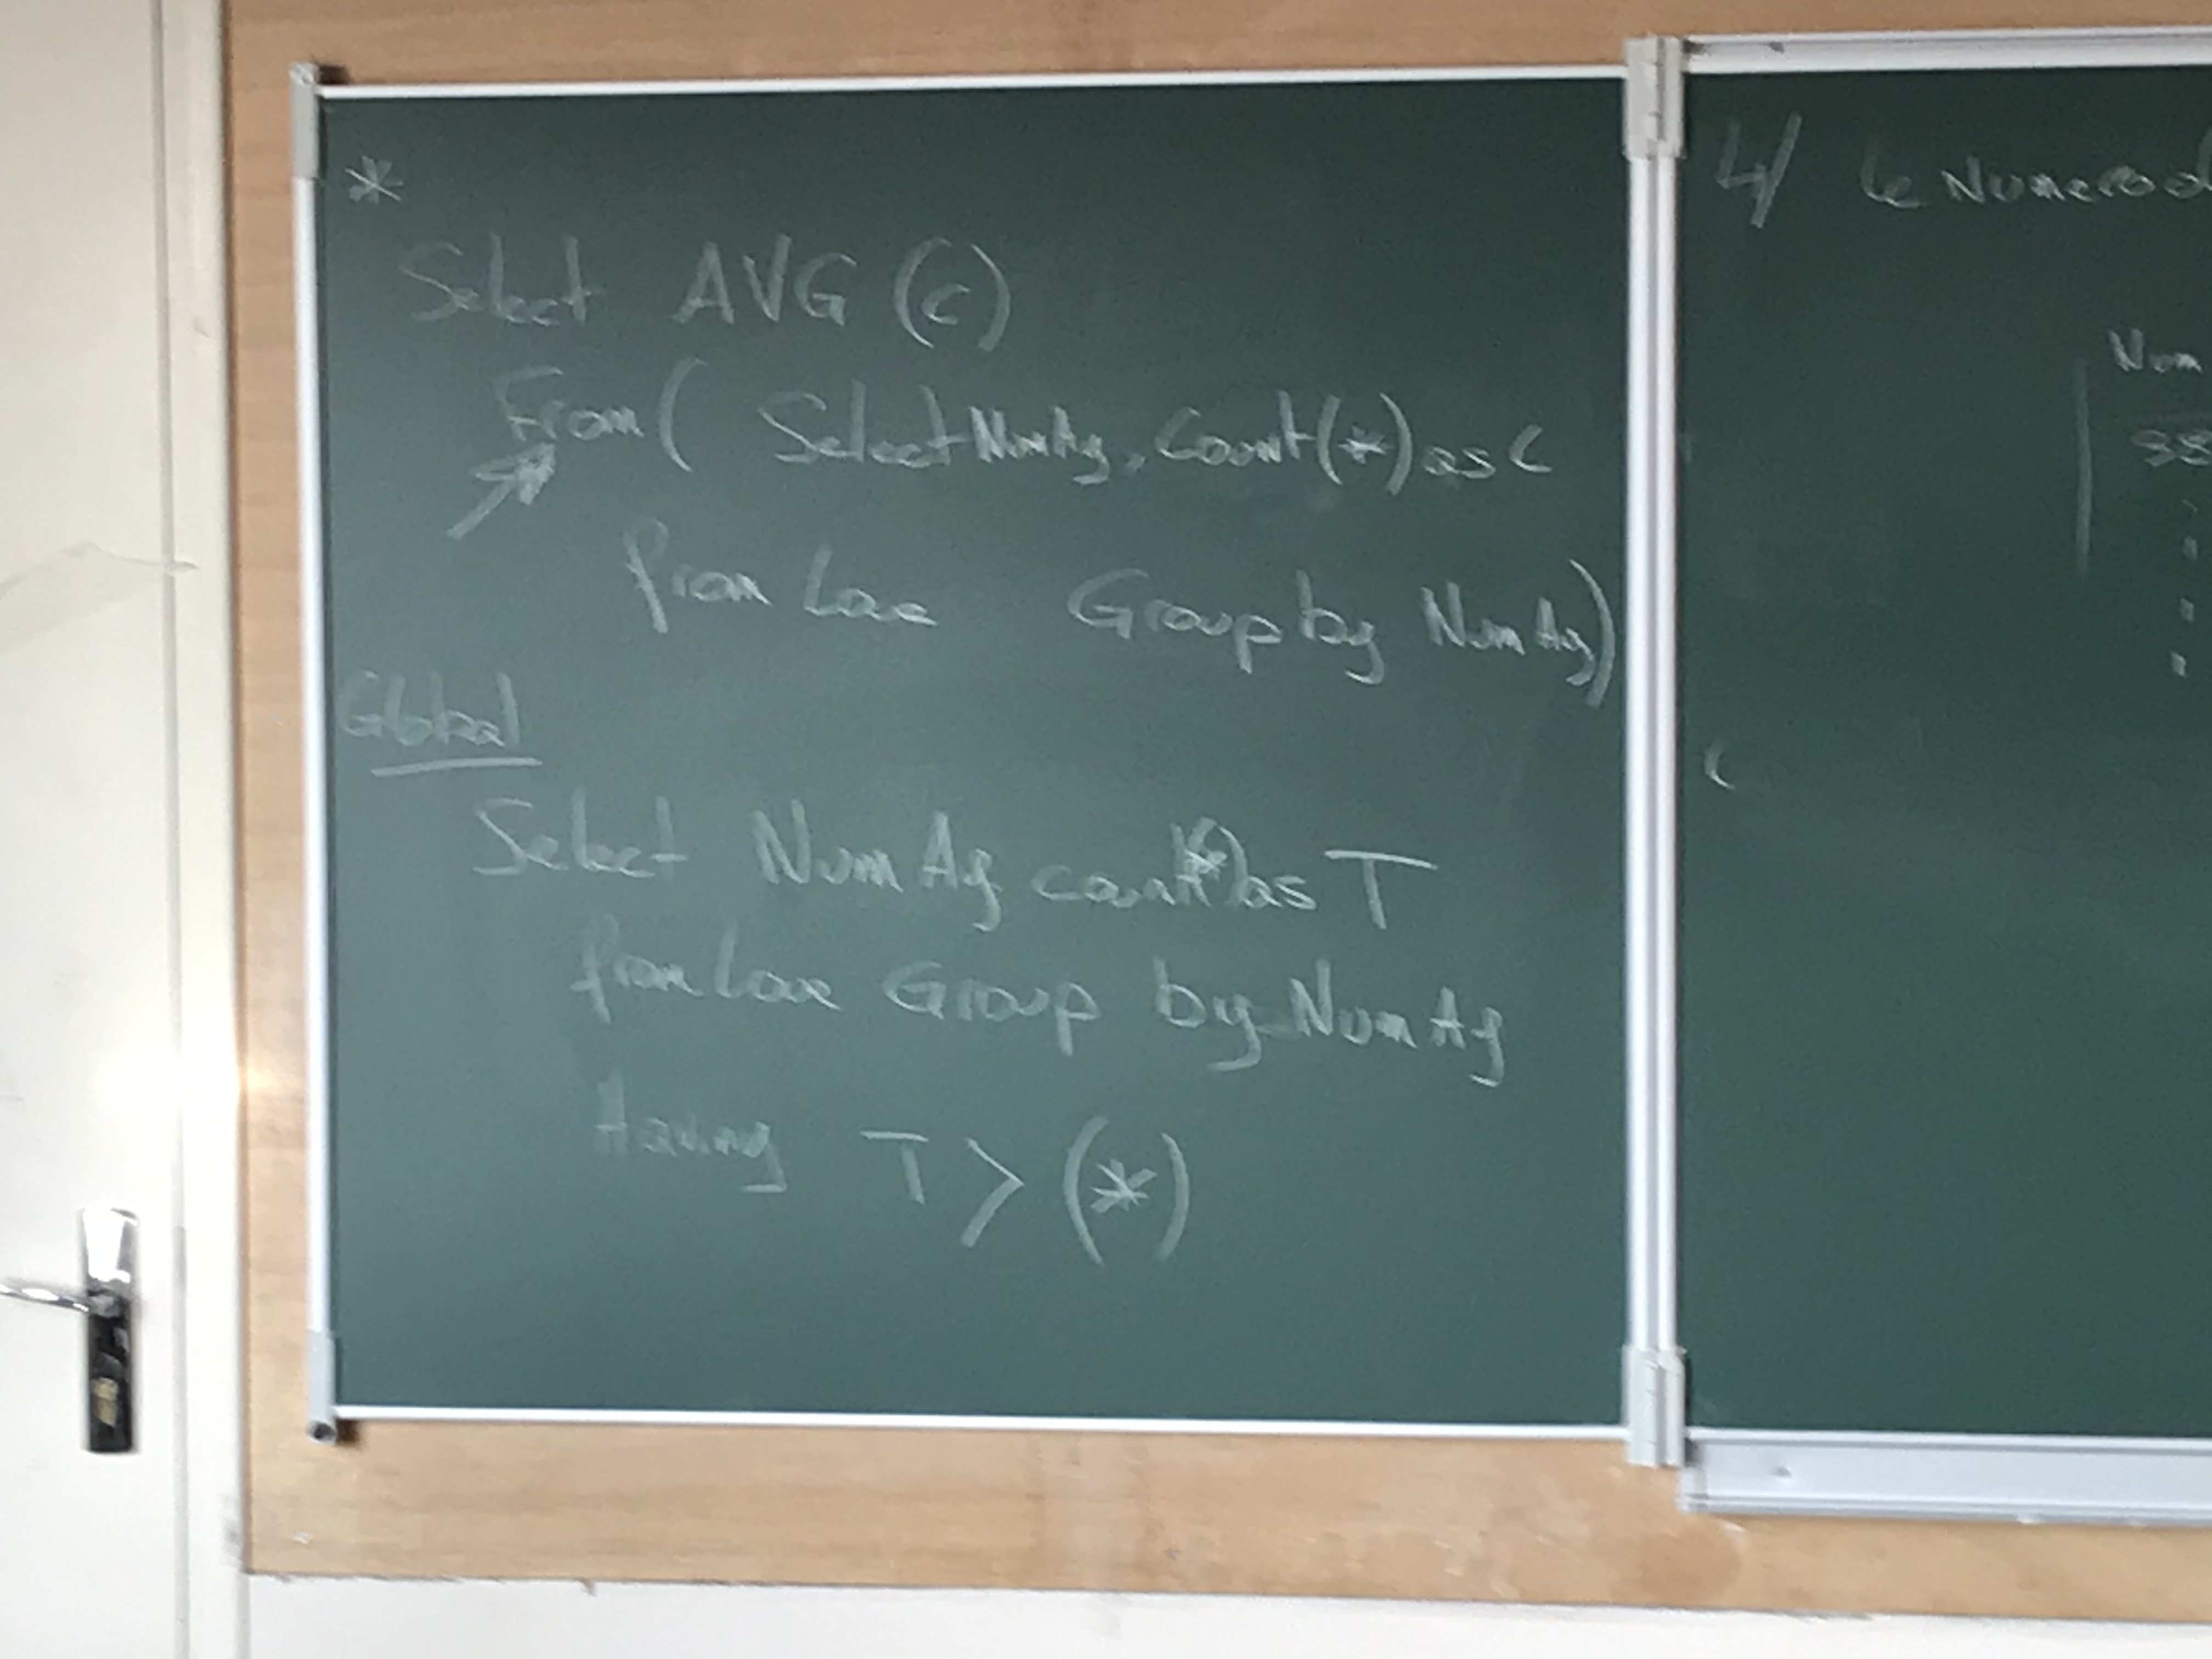 *
Select AVG (c)
From ( Select NumAg, Count(*) as C
from Loc Group by NumAg)
Global
Select NumAg count(*) as T
from Loc Group by NumAg
Having T > (*)
4/ Le Numero d
Num